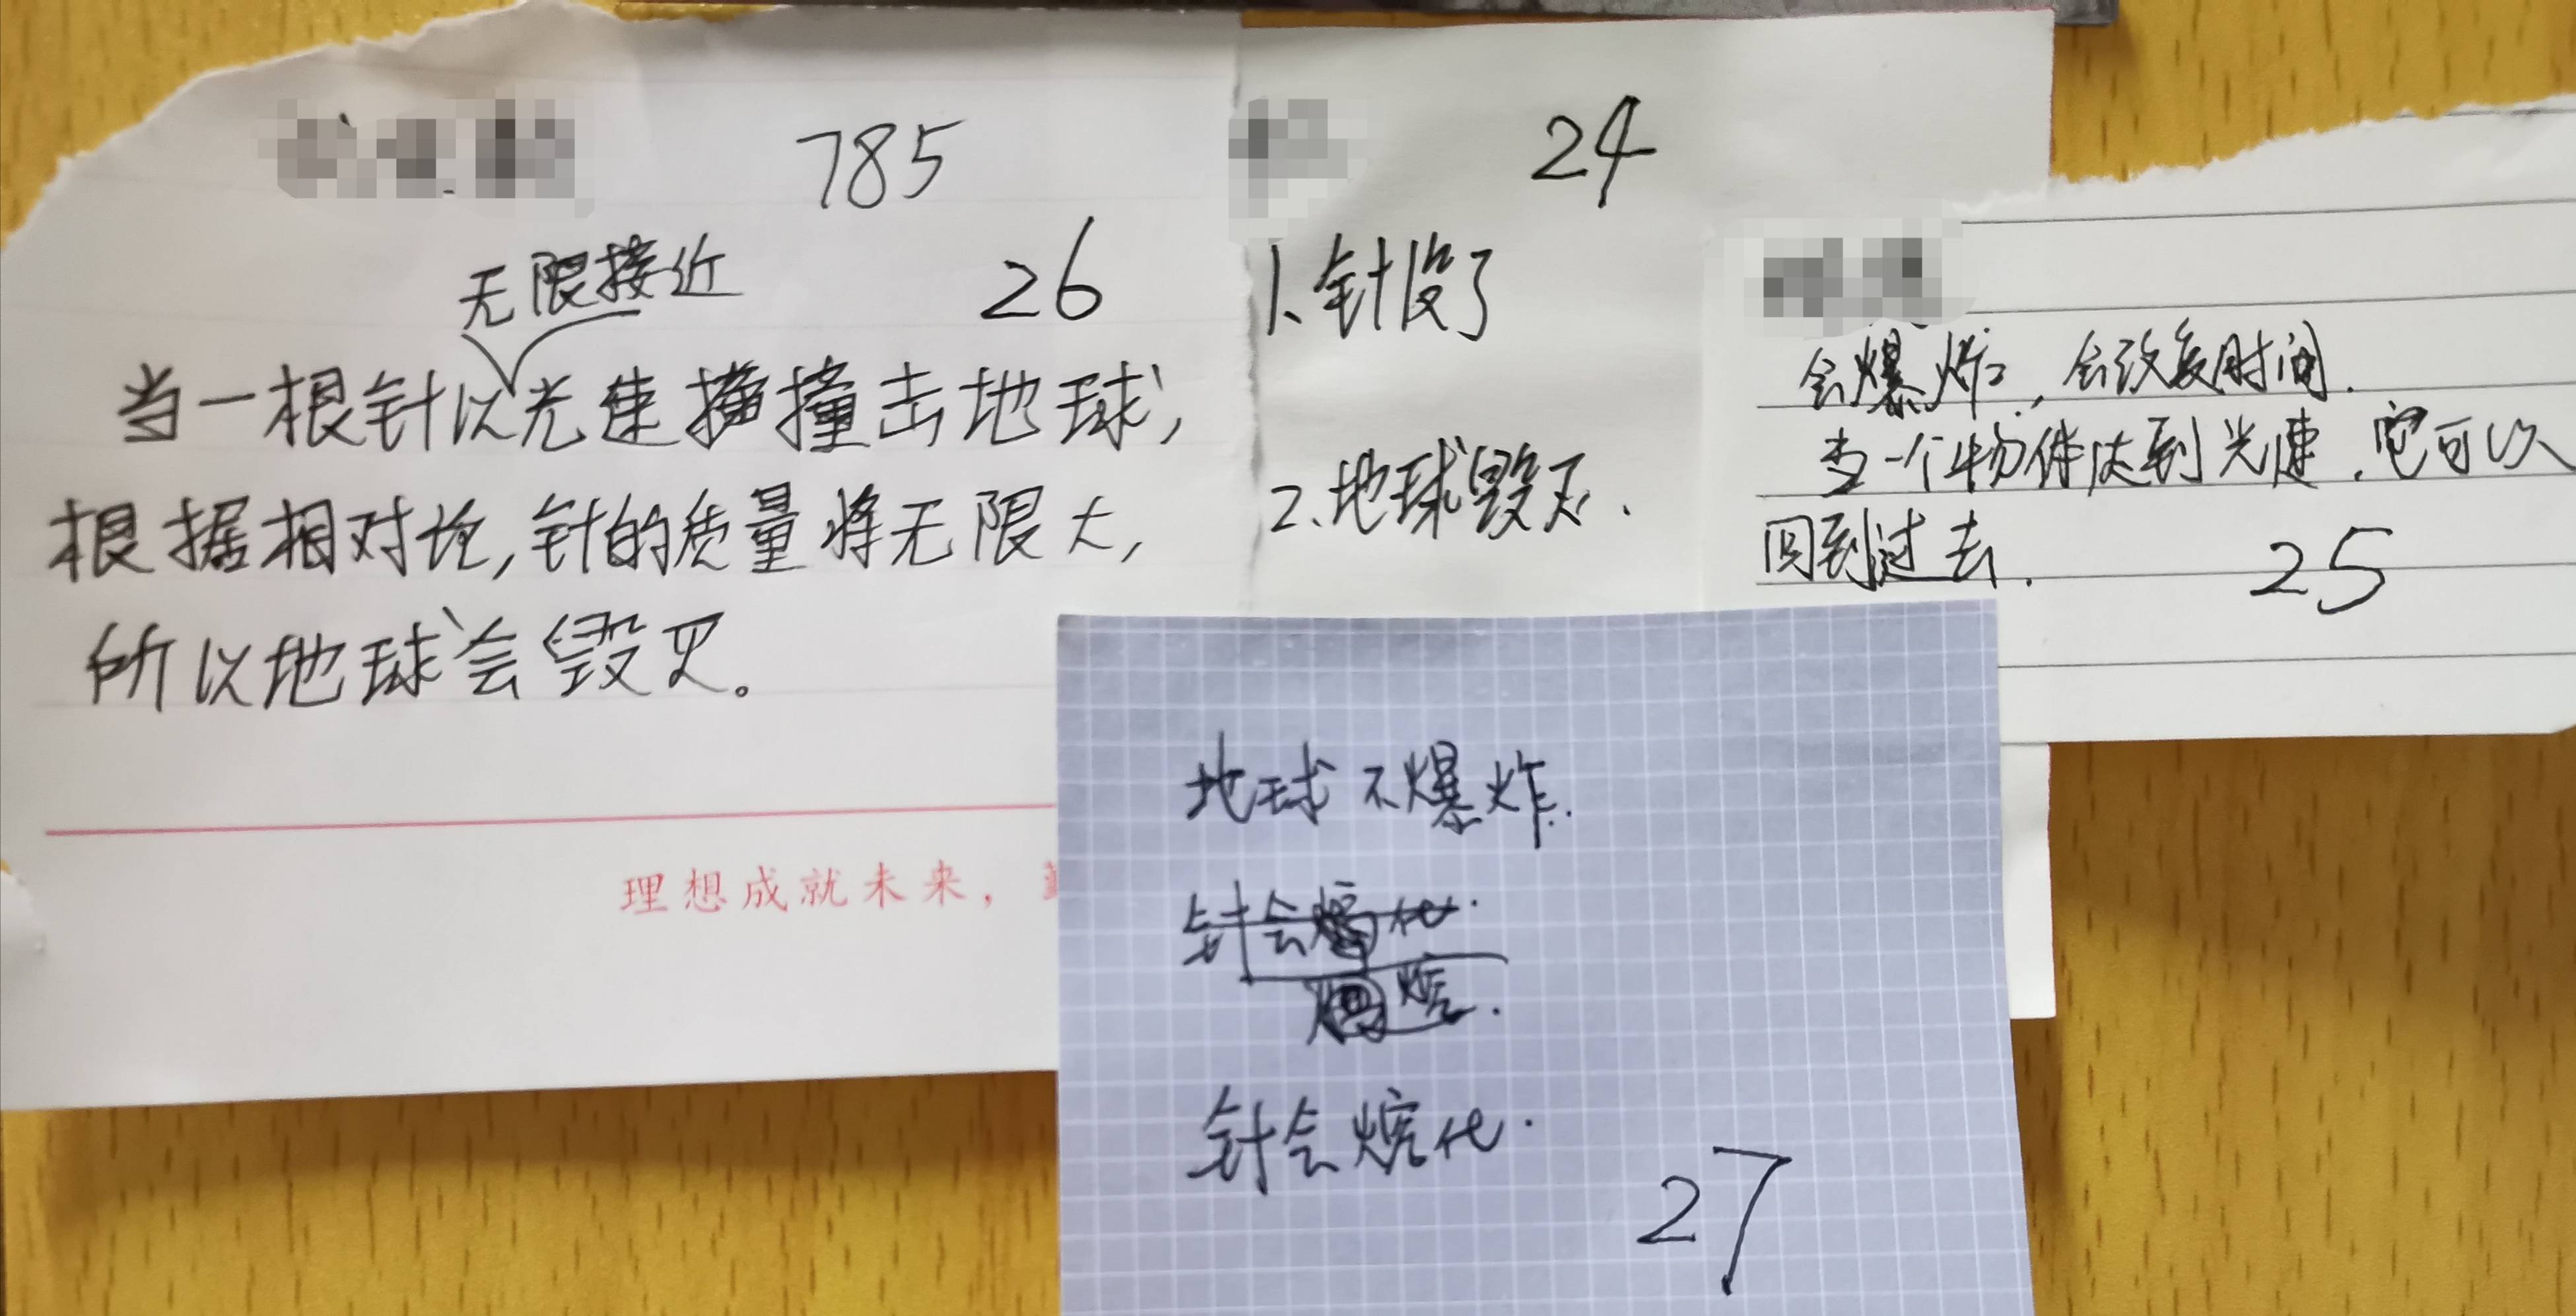 785
26
无限接近
当一根针以光速撞击地球,
根据相对论,针的质量将无限大,
所以地球会毁灭。
理想成就未来,
24
1、针没了
2、地球毁灭.
会爆炸,会改变时间.
当一个物体达到光速,它可以
回到过去.
25
地球不爆炸.
针会熔化.
针会熔化.
27